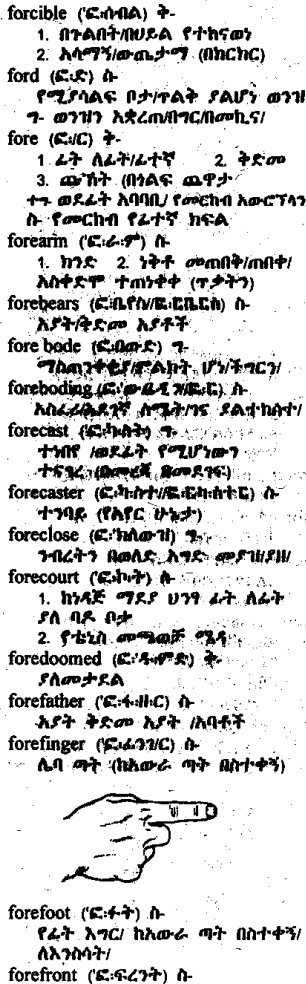 forcible ('ፎ፡ሰብል) ቅ-
1. በጉልበት/በሀይል የተከናወነ
2. አሳማኝ/ውጤታማ (በክርክር)
ford (ፎ፡ድ) ስ-
የሚያሳልፍ ቦታ/ጥልቅ ያልሆነ ወንዝ
ግ- ወንዝን አቋረጠ/በግር/በመኪና/
fore (ፎ፡/ር) ቅ-
1 ፊት ለፊት/ፊተኛ 2. ቅድመ
3. ጩኸት (በጎልፍ ጨዋታ
ተግ ወደፊት አባባቢ/ የመርከብ አውሮፕላን
ስ- የመርከብ የፊተኛ ክፍል
forearm ('ፎ፡ራ፡ም) ስ-
1. ክንድ 2. ነቅቶ መጠበቅ/ጠበቀ/
አስቀድሞ ተጠነቀቀ (ጥቃትን)
forebears (ፎ፡ቤየስ/ፎ፡ርቤርስ) ስ-
አያት/ቅድመ አያቶች
fore bode (ፎ፡በውድ) ግ-
ማስጠንቀቂያ/ምልክት ሆነ/ችግርን/
foreboding (ፎ፡'ውዲንግ/ፎ፡ር) ስ-
አስፈሪ/አደገኛ ስሜት/ገና ያልተከሰተ/
forecast (ፎ፡ካ፡ስት) ግ-
ተነበየ /ወደፊት የሚሆነውን
ተናገረ (በመረጃ በመደገፍ)
forecaster (ፎ፡ካ፡ስተ//ፎ፡ርካ፡ስተር) ስ-
ተንባይ (የአየር ሁኔታ)
foreclose (ፎ፡'ክለውዝ) ግ-
ንብረትን በወለድ አግድ መያዝ/ያዘ/
forecourt ('ፎ፡ኮ፡ት) ስ-
1. ከነዳጅ ማደያ ህንፃ ፊት ለፊት
ያለ ባዶ ቦታ
2. የቴኒስ መጫወቻ ሜዳ
foredoomed (ፎ፡'ዱ፡ምድ) ቅ-
ያለመታደል
forefather ('ፎ፡ፋ፡ዘ፡ር) ስ-
አያት ቅድመ አያት /አባቶች
forefinger ('ፎ፡ፊንገ/ር) ስ-
ሌባ ጣት (ከአውራ ጣት በስተቀኝ)
forefoot ('ፎ፡ፉት) ስ-
የፊት እግር/ ከአውራ ጣት በስተቀኝ/
ለእንስሳት/
forefront ('ፎ፡ፍረንት) ስ-